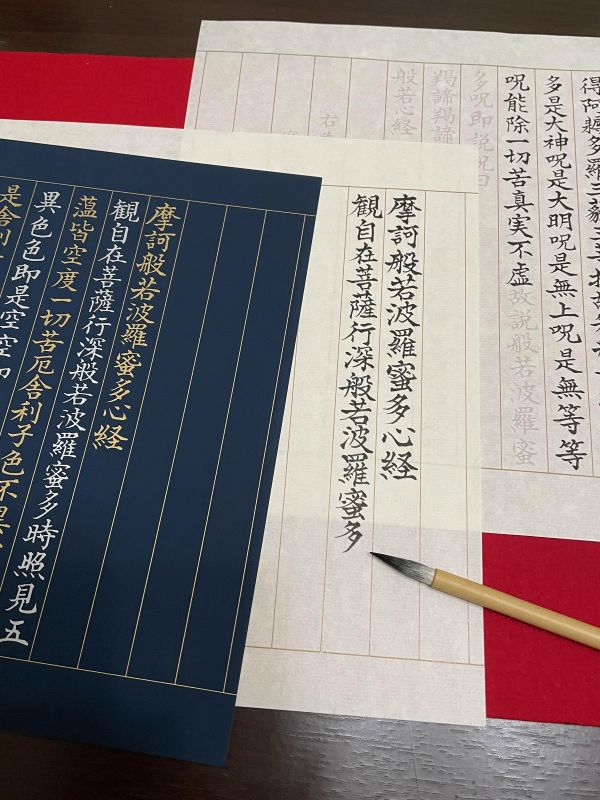 得阿耨多羅三藐三菩提故
多是大神呪是大明呪是無上呪是無等等
呪能除一切苦真実不虚故説般若波羅蜜
多呪即説呪曰
羯諦羯諦
般若心経
右
摩訶般若波羅蜜多心経
観自在菩薩行深般若波羅蜜多
摩訶般若波羅蜜多心経
観自在菩薩行深般若波羅蜜多時照見五
蘊皆空度一切苦厄舎利子色不異
異色色即是空空即
是舎利